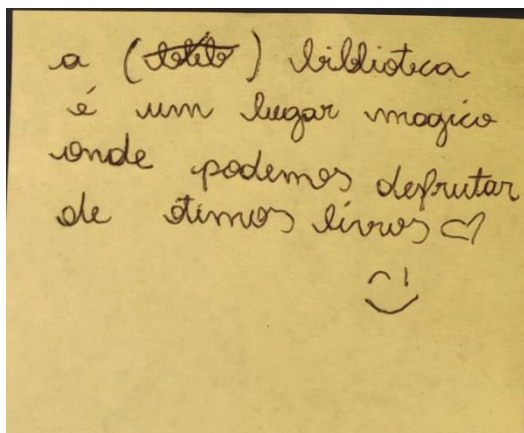 a ( ) biblioteca
é um lugar magico
onde podemos desfrutar
de otimos livros